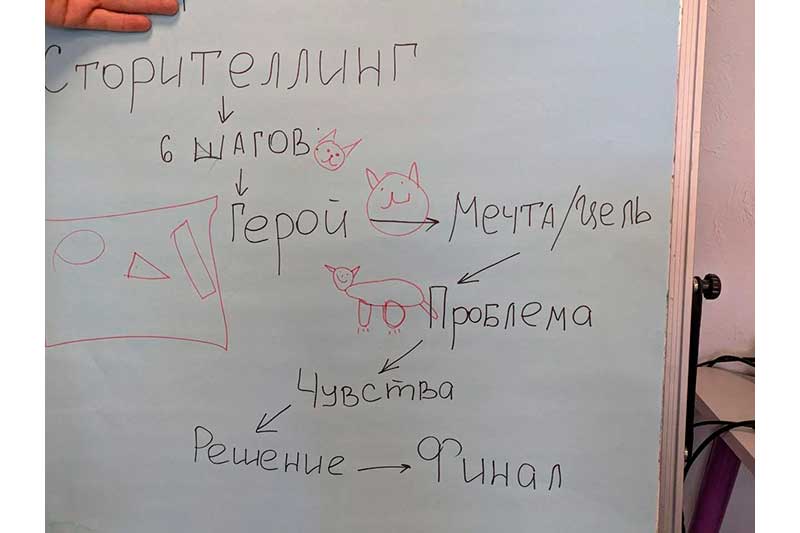 Сторителлинг
6 шагов
Герой → Мечта/цель
Проблема
Чувства
Решение → Финал